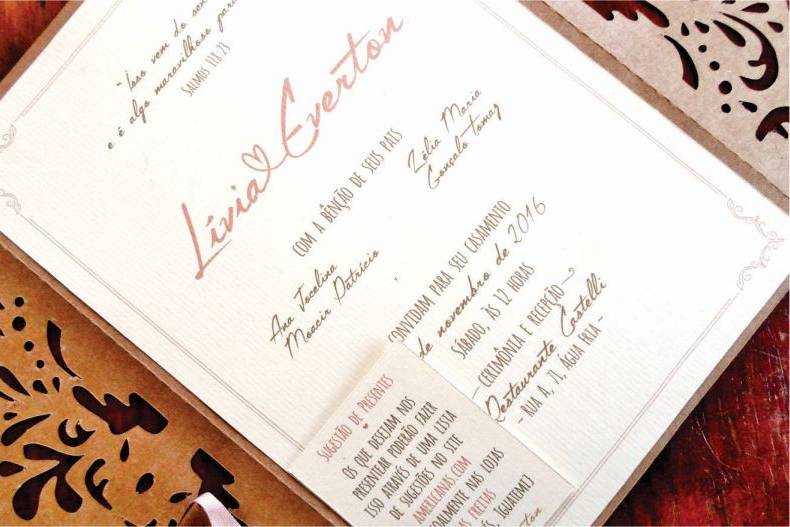 "Isso vem do sen
e é algo maravilhoso para
SALMOS 118:23
Lívia Everton
COM A BÊNÇÃO DE SEUS PAIS
Ana Jocelina
Moacir Patrício
Zélia Maria
Gonçalo Tomaz
CONVIDAM PARA SEU CASAMENTO
de novembro de 2016
SÁBADO, ÀS 12 HORAS
CERIMÔNIA E RECEPÇÃO
Restaurante Castelli
- RUA A, 71, ÁGUA FRIA -
SUGESTÃO DE PRESENTES
OS QUE DESEJAM NOS
PRESENTEAR PODERÃO FAZER
ISSO ATRAVÉS DE UMA LISTA
DE SUGESTÕES NO SITE
AMERICANAS.COM
DALMENTE NAS LOJAS
AS FREITAS
S, IGUATEMI)